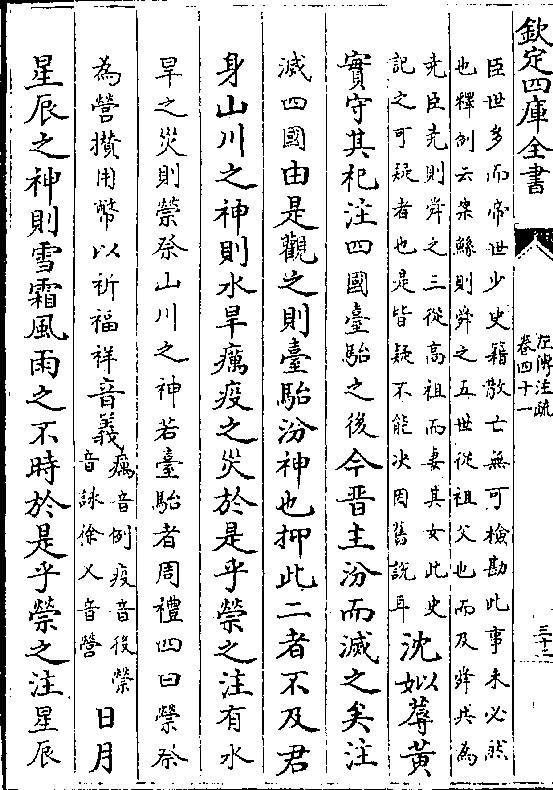 欽定四庫全書
左傳注疏
卷四十一
三十二
臣世多而帝世少史籍散亡無可檢勘此事未必然
也釋例云案鯀則舜之五世從祖父也而及舜共為
堯臣堯則舜之三從高祖而妻其女此史
記之可疑者也是皆疑不能决因舊說耳
沈姒蓐黃
實守其祀注四國臺駘之後今晉主汾而滅之矣注
滅四國由是觀之則臺駘汾神也抑此二者不及君
身山川之神則水旱癘疫之災於是乎禜之注有水
旱之災則禜祭山川之神若臺駘者周禮四曰禜祭
為營攅用幣以祈福祥音義
癘音例疫音役禜
音詠徐又音營
日月
星辰之神則雪霜風雨之不時於是乎禜之注星辰